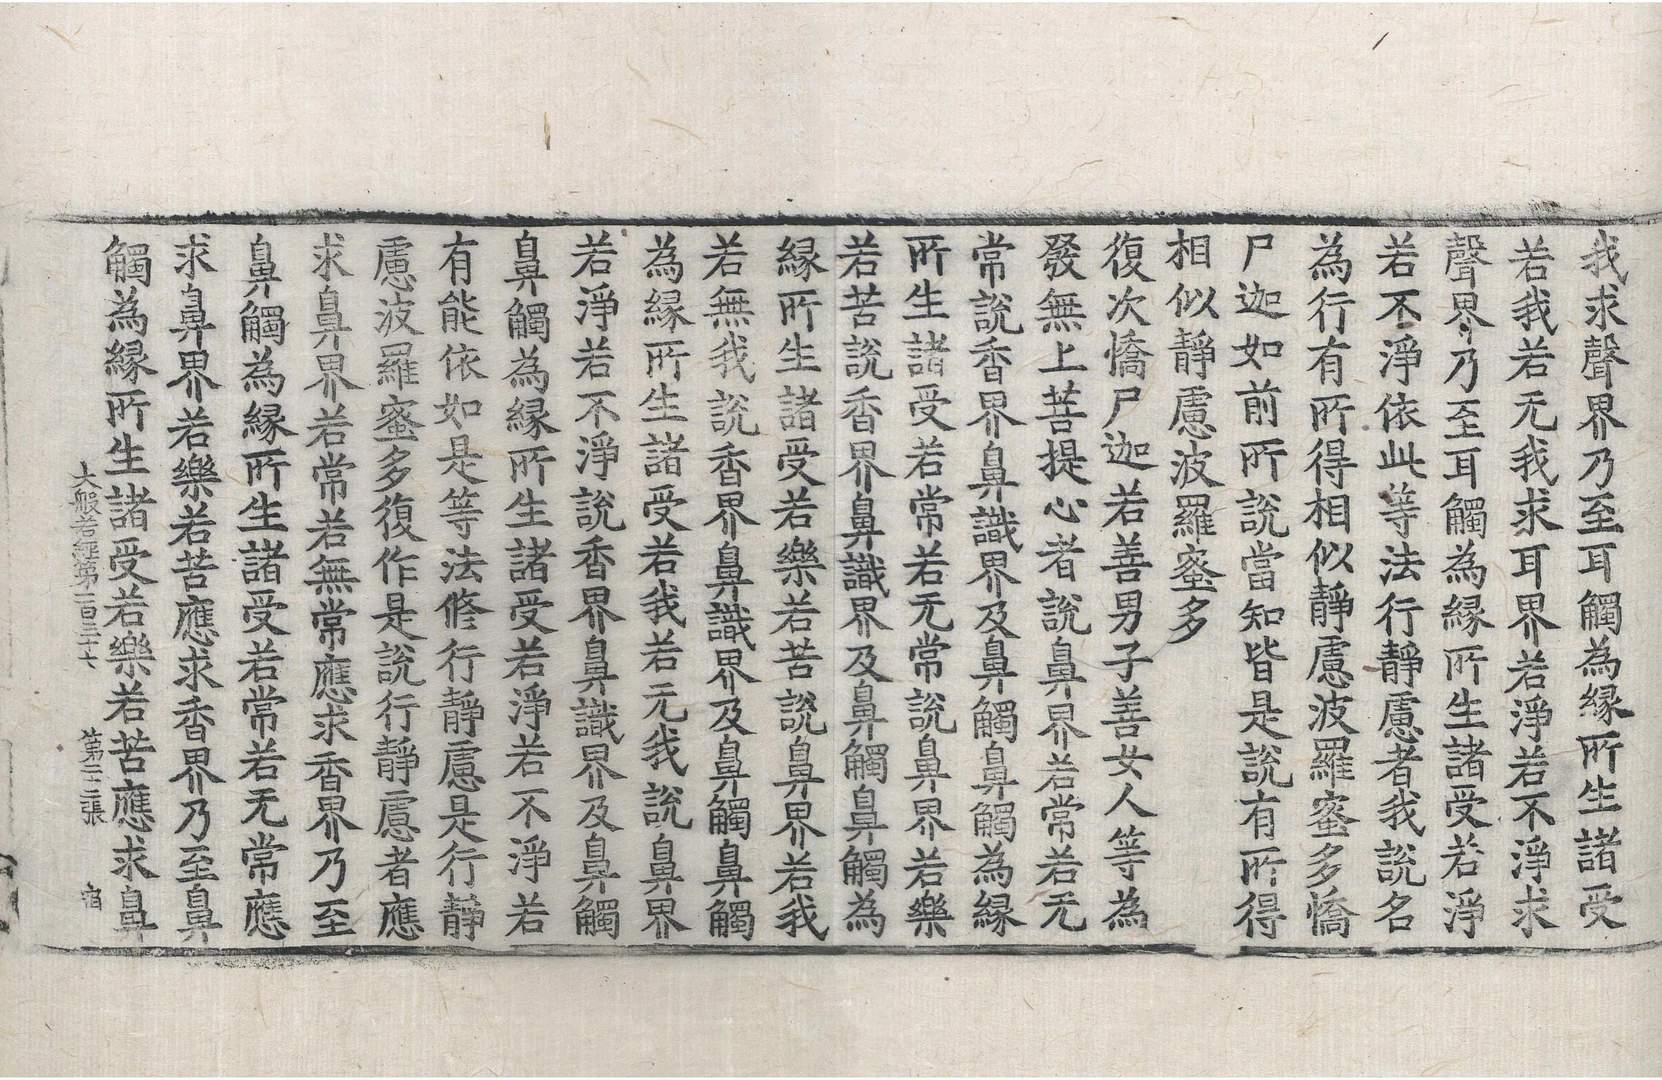 我求聲界乃至耳觸為緣所生諸受
若我若无我求耳界若淨若不淨求
聲界乃至耳觸為緣所生諸受若淨
若不淨依此等法行靜慮者我說名
為行有所得相似靜慮波羅蜜多憍
尸迦如前所說當知皆是說有所得
相似靜慮波羅蜜多
復次憍尸迦若善男子善女人等為
發無上菩提心者說鼻界若常若无
常說香界鼻識界及鼻觸鼻觸為緣
所生諸受若常若无常說鼻界若樂
若苦說香界鼻識界及鼻觸鼻觸為
緣所生諸受若樂若苦說鼻界若我
若無我說香界鼻識界及鼻觸鼻觸
為緣所生諸受若我若无我說鼻界
若淨若不淨說香界鼻識界及鼻觸
鼻觸為緣所生諸受若淨若不淨若
有能依如是等法修行靜慮是行靜
慮波羅蜜多復作是說行靜慮者應
求鼻界若常若無常應求香界乃至
鼻觸為緣所生諸受若常若无常應
求鼻界若樂若苦應求香界乃至鼻
觸為緣所生諸受若樂若苦應求鼻
大般若經第一百三十六 第二十二張 宿